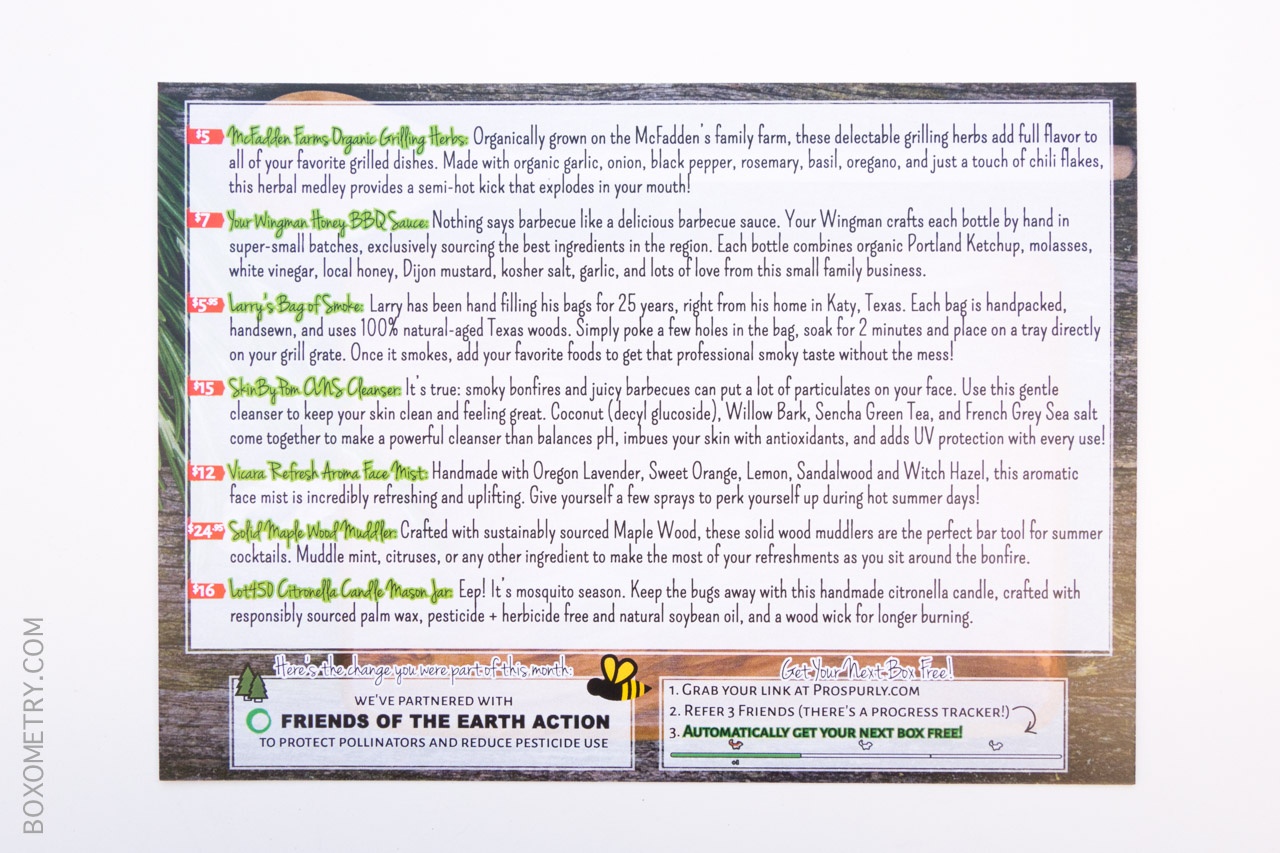 $5 McFadden Farms Organic Grilling Herbs: Organically grown on the McFadden's family farm, these delectable grilling herbs add full flavor to
all of your favorite grilled dishes. Made with organic garlic, onion, black pepper, rosemary, basil, oregano, and just a touch of chili flakes,
this herbal medley provides a semi-hot kick that explodes in your mouth!
$7 Your Wingman Honey BBQ Sauce: Nothing says barbecue like a delicious barbecue sauce. Your Wingman crafts each bottle by hand in
super-small batches, exclusively sourcing the best ingredients in the region. Each bottle combines organic Portland Ketchup, molasses,
white vinegar, local honey, Dijon mustard, kosher salt, garlic, and lots of love from this small family business.
$5.95 Larry's Bag of Smoke: Larry has been hand filling his bags for 25 years, right from his home in Katy, Texas. Each bag is handpacked,
handsewn, and uses 100% natural-aged Texas woods. Simply poke a few holes in the bag, soak for 2 minutes and place on a tray directly
on your grill grate. Once it smokes, add your favorite foods to get that professional smoky taste without the mess!
$15 SkinByPom CWS Cleanser: It's true: smoky bonfires and juicy barbecues can put a lot of particulates on your face. Use this gentle
cleanser to keep your skin clean and feeling great. Coconut (decyl glucoside), Willow Bark, Sencha Green Tea, and French Grey Sea salt
come together to make a powerful cleanser than balances pH, imbues your skin with antioxidants, and adds UV protection with every use!
$12 Vicara Refresh Aroma Face Mist: Handmade with Oregon Lavender, Sweet Orange, Lemon, Sandalwood and Witch Hazel, this aromatic
face mist is incredibly refreshing and uplifting. Give yourself a few sprays to perk yourself up during hot summer days!
$24.95 Solid Maple Wood Muddler: Crafted with sustainably sourced Maple Wood, these solid wood muddlers are the perfect bar tool for summer
cocktails. Muddle mint, citruses, or any other ingredient to make the most of your refreshments as you sit around the bonfire.
$16 Lot450 Citronella Candle Mason Jar: Eep! It's mosquito season. Keep the bugs away with this handmade citronella candle, crafted with
responsibly sourced palm wax, pesticide + herbicide free and natural soybean oil, and a wood wick for longer burning.
Here's the change you were part of this month:
WE'VE PARTNERED WITH
FRIENDS OF THE EARTH ACTION
TO PROTECT POLLINATORS AND REDUCE PESTICIDE USE
Get Your Next Box Free!
1. GRAB YOUR LINK AT PROSPURLY.COM
2. REFER 3 FRIENDS (THERE'S A PROGRESS TRACKER!)
3. AUTOMATICALLY GET YOUR NEXT BOX FREE!
BOXOMETRY.COM